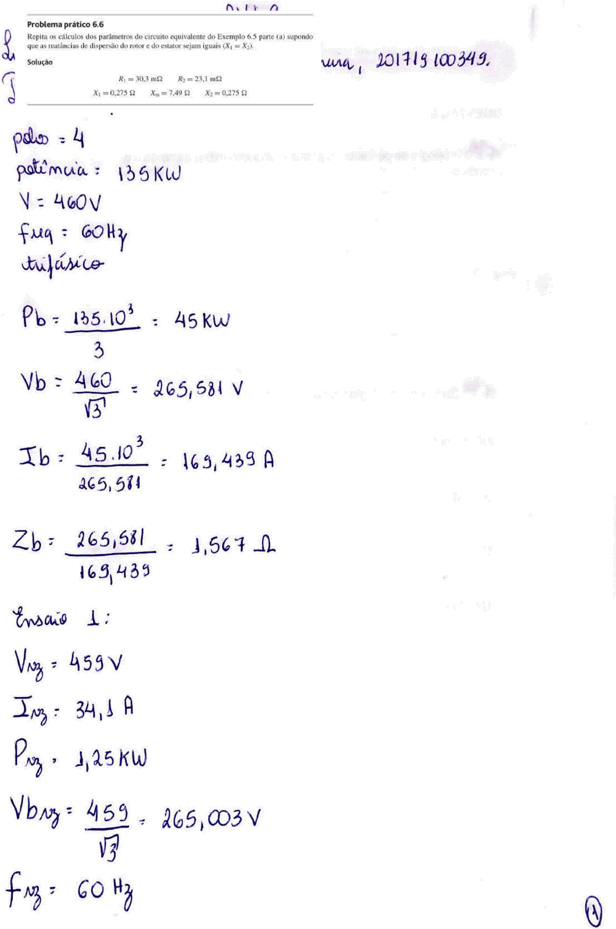 Problema prático 6.6
Repita os cálculos dos parâmetros do circuito equivalente do Exemplo 6.5 parte (a) supondo
que as reatâncias de dispersão do rotor e do estator sejam iguais (X₁ = X₂).
Solução
R₁ = 30,3 mΩ R₂ = 23,1 mΩ
X₁ = 0,275 Ω Xₘ = 7,49 Ω X₂ = 0,275 Ω
201719100349.
polos = 4
potência = 135 KW
V = 460 V
freq = 60 Hz
trifásico
Pb = 135.10³ / 3 = 45 KW
Vb = 460 / √3 = 265,581 V
Ib = 45.10³ / 265,581 = 169,439 A
Zb = 265,581 / 169,439 = 1,567 Ω
Ensaio 1:
Vnz = 459 V
Inz = 34,1 A
Pnz = 1,25 KW
Vbnz = 459 / √3 = 265,003 V
fnz = 60 Hz
(1)